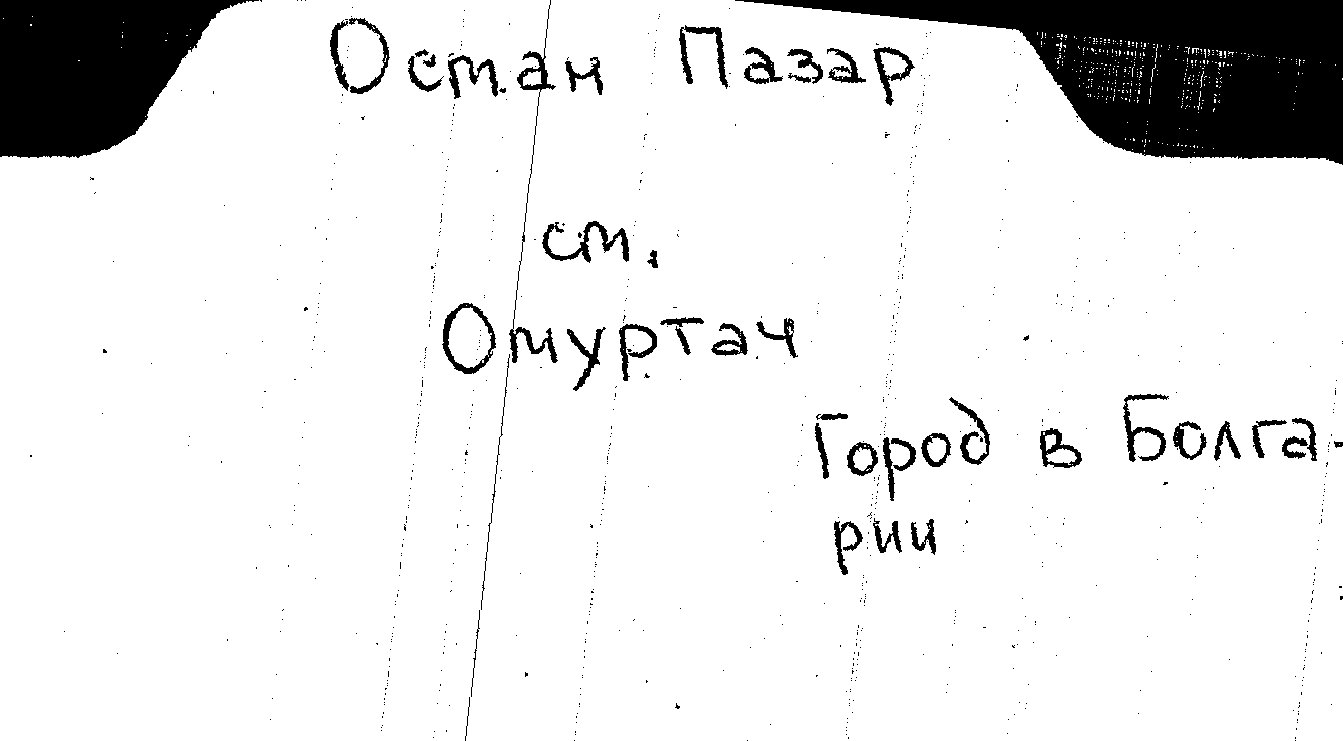 Остан Пазар
см.
Омуртач
Город в Болга-
рии